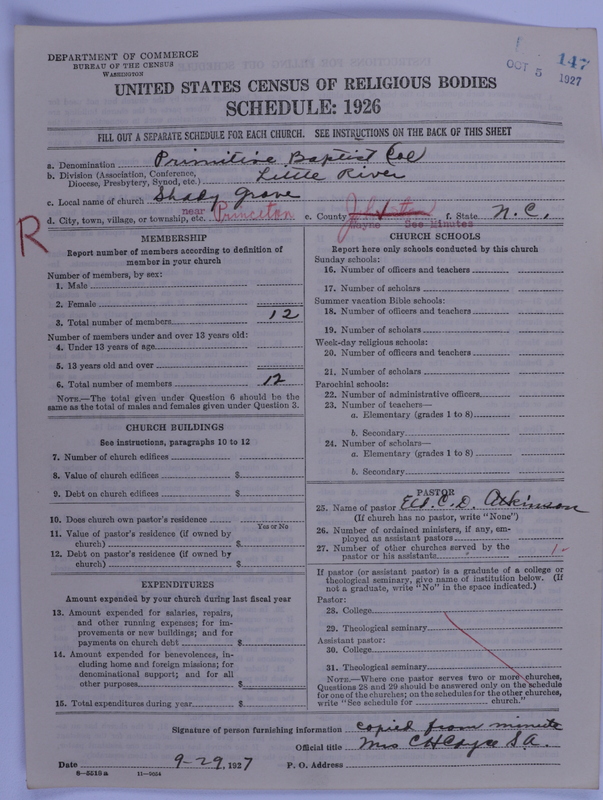 DEPARTMENT OF COMMERCE
BUREAU OF THE CENSUS
WASHINGTON
147
OCT 5 1927
UNITED STATES CENSUS OF RELIGIOUS BODIES
SCHEDULE: 1926
FILL OUT A SEPARATE SCHEDULE FOR EACH CHURCH. SEE INSTRUCTIONS ON THE BACK OF THIS SHEET
a. Denomination Primitive Baptist Col
b. Division (Association, Conference, Diocese, Presbytery, Synod, etc.) Little River
c. Local name of church Shady Grove
d. City, town, village, or township, etc. near Princeton e. County Johnston f. State N.C.
Wayne See Minutes
R
MEMBERSHIP
Report number of members according to definition of
member in your church
Number of members, by sex:
1. Male
2. Female
3. Total number of members 12
Number of members under and over 13 years old:
4. Under 13 years of age
5. 13 years old and over
6. Total number of members 12
NOTE.—The total given under Question 6 should be the
same as the total of males and females given under Question 3.
CHURCH BUILDINGS
See instructions, paragraphs 10 to 12
7. Number of church edifices
8. Value of church edifices $
9. Debt on church edifices $
10. Does church own pastor's residence
Yes or No
11. Value of pastor's residence (if owned by
church) $
12. Debt on pastor's residence (if owned by
church) $
EXPENDITURES
Amount expended by your church during last fiscal year
13. Amount expended for salaries, repairs,
and other running expenses; for im-
provements or new buildings; and for
payments on church debt $
14. Amount expended for benevolences, in-
cluding home and foreign missions; for
denominational support; and for all
other purposes $
15. Total expenditures during year $
CHURCH SCHOOLS
Report here only schools conducted by this church
Sunday schools:
16. Number of officers and teachers
17. Number of scholars
Summer vacation Bible schools:
18. Number of officers and teachers
19. Number of scholars
Week-day religious schools:
20. Number of officers and teachers
21. Number of scholars
Parochial schools:
22. Number of administrative officers
23. Number of teachers—
a. Elementary (grades 1 to 8)
b. Secondary
24. Number of scholars—
a. Elementary (grades 1 to 8)
b. Secondary
PASTOR
25. Name of pastor Eld. C. D. Atkinson
(If church has no pastor, write "None")
26. Number of ordained ministers, if any, em-
ployed as assistant pastors
27. Number of other churches served by the
pastor or his assistants 1
If pastor (or assistant pastor) is a graduate of a college or
theological seminary, give name of institution below. (If
not a graduate, write "No" in the space indicated.)
Pastor:
28. College
29. Theological seminary
Assistant pastor:
30. College
31. Theological seminary
NOTE.—Where one pastor serves two or more churches,
Questions 28 and 29 should be answered only on the schedule
for one of the churches; on the schedules for the other churches,
write "See schedule for church."
Signature of person furnishing information copied from minute
Official title Mrs C H Cayce S.A.
Date 9-29, 1927 P. O. Address
8-5510 a 11-9054